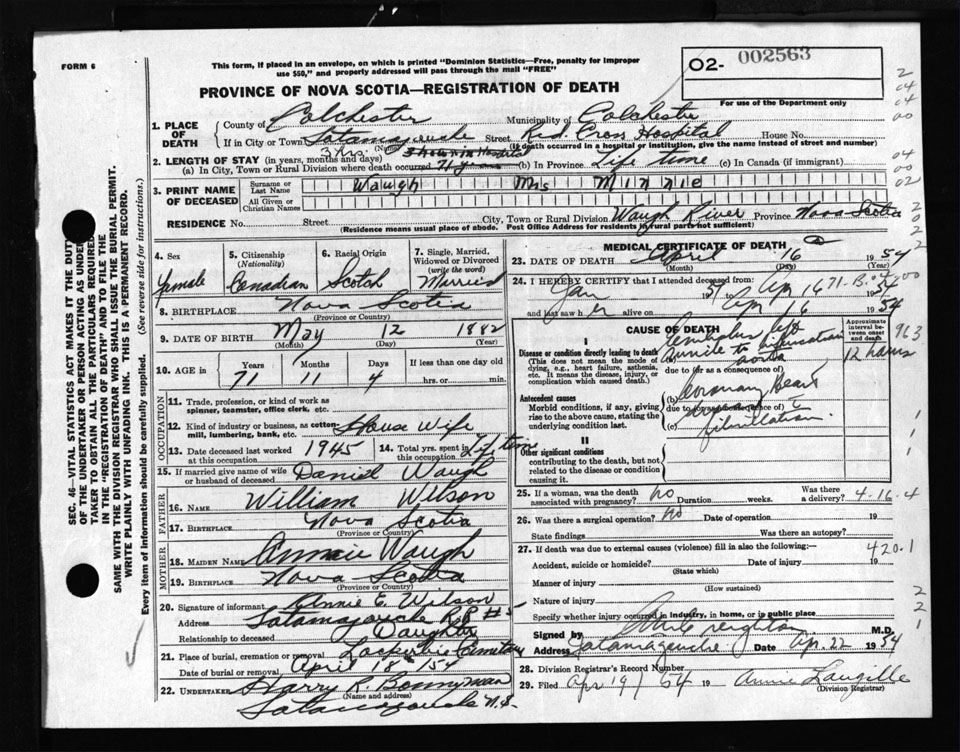 FORM 6
This form, if placed in an envelope, on which is printed "Dominion Statistics—Free, penalty for improper
use $50," and properly addressed will pass through the mail "FREE"
02- 002563
For use of the Department only
PROVINCE OF NOVA SCOTIA—REGISTRATION OF DEATH
1. PLACE OF DEATH
County of Colchester Municipality of Colchester
If in City or Town Tatamagouche Street Red Cross Hospital House No.
(Name) (If death occurred in a hospital or institution, give the name instead of street and number)
2. LENGTH OF STAY (in years, months and days) 3 hrs.
(a) In City, Town or Rural Division where death occurred (b) In Province Life time (c) In Canada (if immigrant)
3. PRINT NAME OF DECEASED
Surname or Last Name Waugh Mrs Minnie
All Given or Christian Names
RESIDENCE No. Street City, Town or Rural Division Waugh River Province Nova Scotia
(Residence means usual place of abode. Post Office Address for residents in rural parts not sufficient)
4. Sex Female
5. Citizenship (Nationality) Canadian
6. Racial Origin Scotch
7. Single, Married, Widowed or Divorced (write the word) Married
8. BIRTHPLACE Nova Scotia
(Province or Country)
9. DATE OF BIRTH May 12 1882
(Month) (Day) (Year)
10. AGE in Years 71 Months 11 Days 4 If less than one day old hrs. or min.
OCCUPATION
11. Trade, profession, or kind of work as spinner, teamster, office clerk, etc.
12. Kind of industry or business, as cotton mill, lumbering, bank, etc. House Wife
13. Date deceased last worked at this occupation 1945
14. Total yrs. spent in this occupation Life time
15. If married give name of wife or husband of deceased Daniel Waugh
FATHER
16. NAME William Wilson
17. BIRTHPLACE Nova Scotia
MOTHER
18. MAIDEN NAME Annie Waugh
19. BIRTHPLACE Nova Scotia
(Province or Country)
20. Signature of informant Annie E. Wilson
Address Tatamagouche R.R #5
Relationship to deceased Daughter
21. Place of burial, cremation or removal Lockerbie Cemetery
Date of burial or removal April 18 '54
22. UNDERTAKER Harry R. Bonnyman
(Name and address)
Tatamagouche N.S.
MEDICAL CERTIFICATE OF DEATH
23. DATE OF DEATH April 16 1954
(Month) (Day) (Year)
24. I HEREBY CERTIFY that I attended deceased from:
Jan 19 to Ap 16 1954
and last saw her alive on Ap 16 1954
CAUSE OF DEATH
Approximate interval between onset and death
I
Disease or condition directly leading to death
(This does not mean the mode of dying, e.g., heart failure, asthenia, etc. It means the disease, injury, or complication which caused death.)
bifurcation aorta 12 hours
due to (or as a consequence of)
Antecedent causes
Morbid conditions, if any, giving rise to the above cause, stating the underlying condition last.
(b) Coronary heart
due to (or as a consequence of)
(c) fibrillation.
II
Other significant conditions
contributing to the death, but not related to the disease or condition causing it.
25. If a woman, was the death associated with pregnancy? no Duration weeks. Was there a delivery? 4-16-4
26. Was there a surgical operation? no Date of operation 19
State findings Was there an autopsy?
27. If death was due to external causes (violence) fill in also the following:—
420.1
Accident, suicide or homicide? Date of injury 19
(State which)
Manner of injury
(How sustained)
Nature of injury
Specify whether injury occurred in industry, in home, or in public place
Signed by Creighton M.D.
Address Tatamagouche Date Ap. 22 1954
28. Division Registrar's Record Number
29. Filed Apr 19/54 19 Annie Langille
(Division Registrar)
SEC. 46—VITAL STATISTICS ACT MAKES IT THE DUTY
OF THE UNDERTAKER OR PERSON ACTING AS UNDER-
TAKER TO OBTAIN ALL THE PARTICULARS REQUIRED
IN THE "REGISTRATION OF DEATH" AND TO FILE THE
SAME WITH THE DIVISION REGISTRAR WHO SHALL ISSUE THE BURIAL PERMIT.
WRITE PLAINLY WITH UNFADING INK. THIS IS A PERMANENT RECORD.
Every item of information should be carefully supplied. (See reverse side for instructions.)